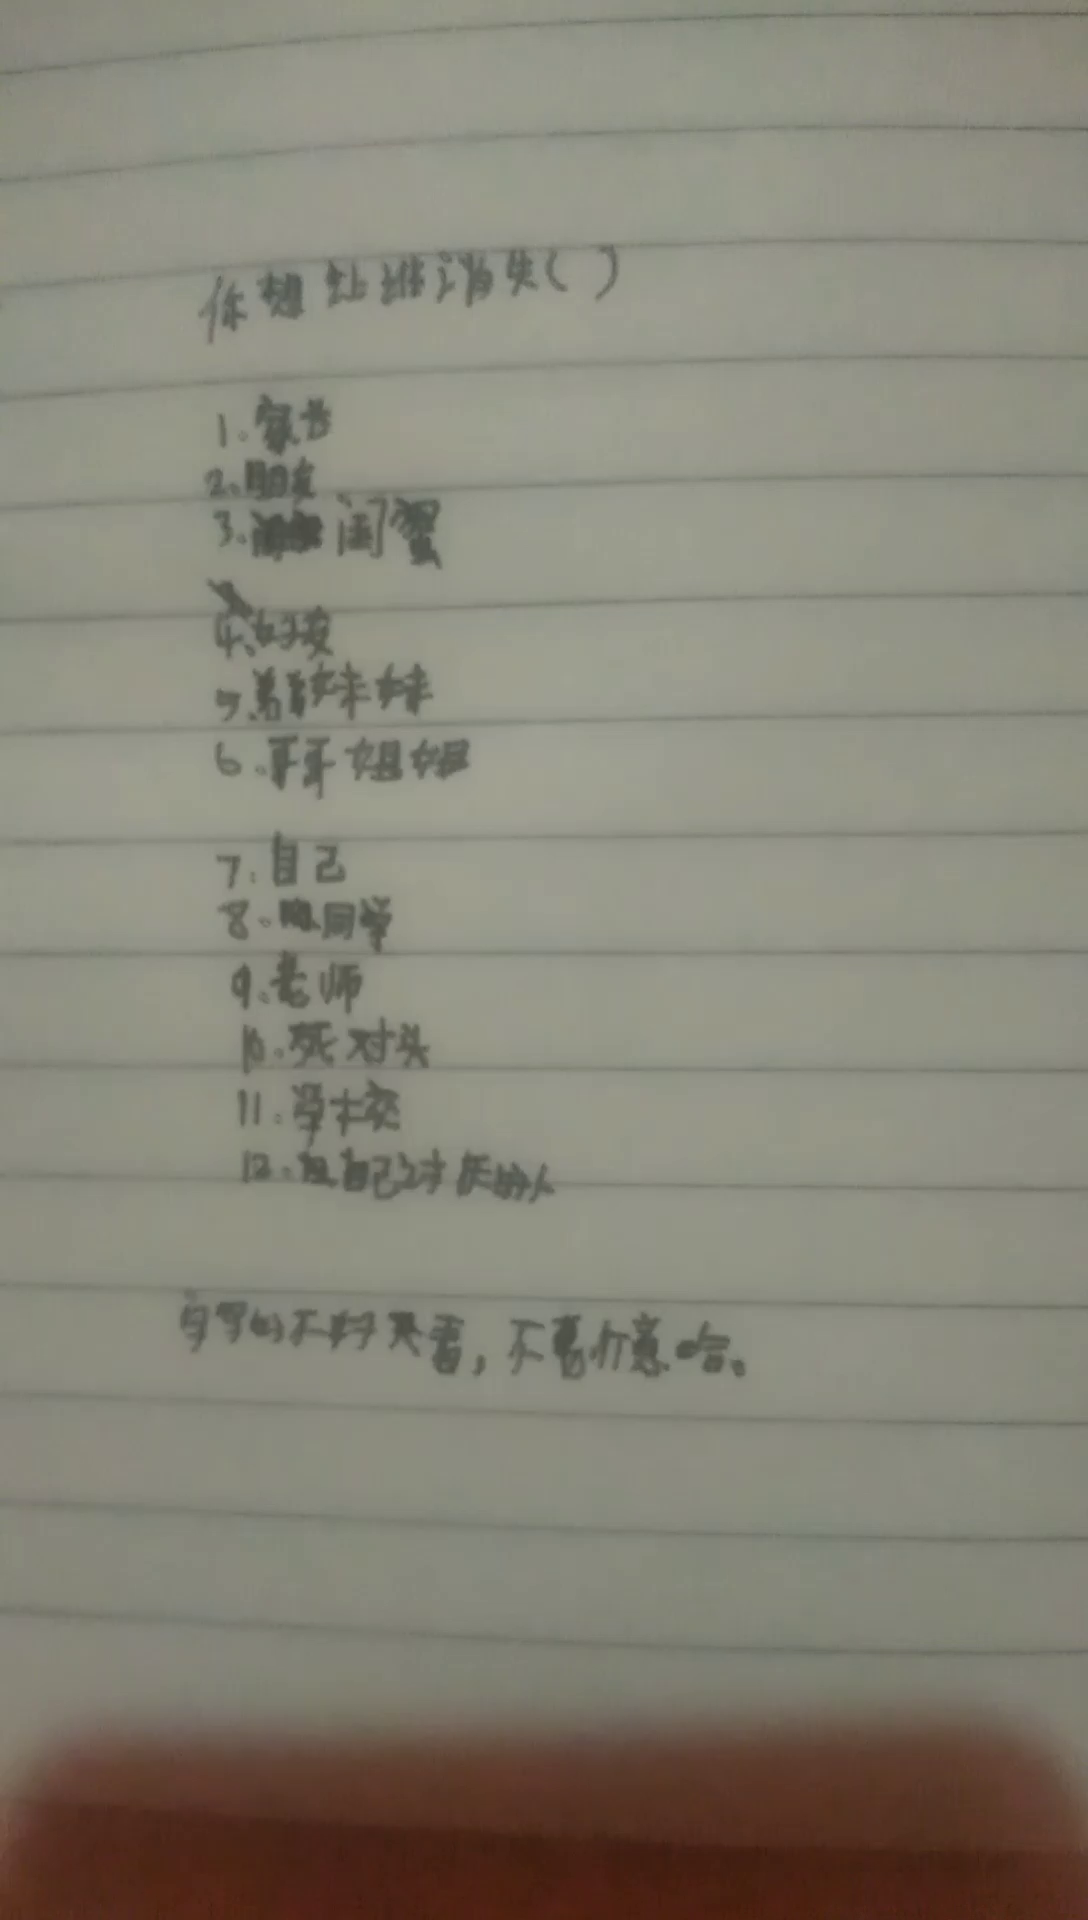 你想让谁消失( )
1.家长
2.朋友
3.闺蜜
4.好友
5.弟弟妹妹
6.哥哥姐姐
7.自己
8.同学
9.老师
10.死对头
11.学校
12.自己讨厌的人
写的不好看,不要介意哈。